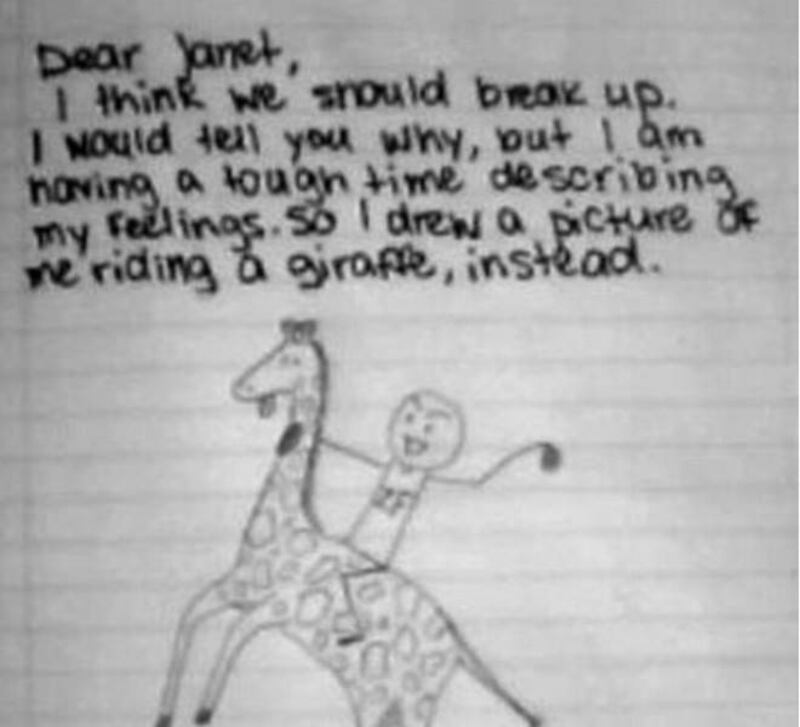 Dear Janet,
I think we should break up.
I would tell you why, but I am
having a tough time describing
my feelings. So I drew a picture of
me riding a giraffe, instead.